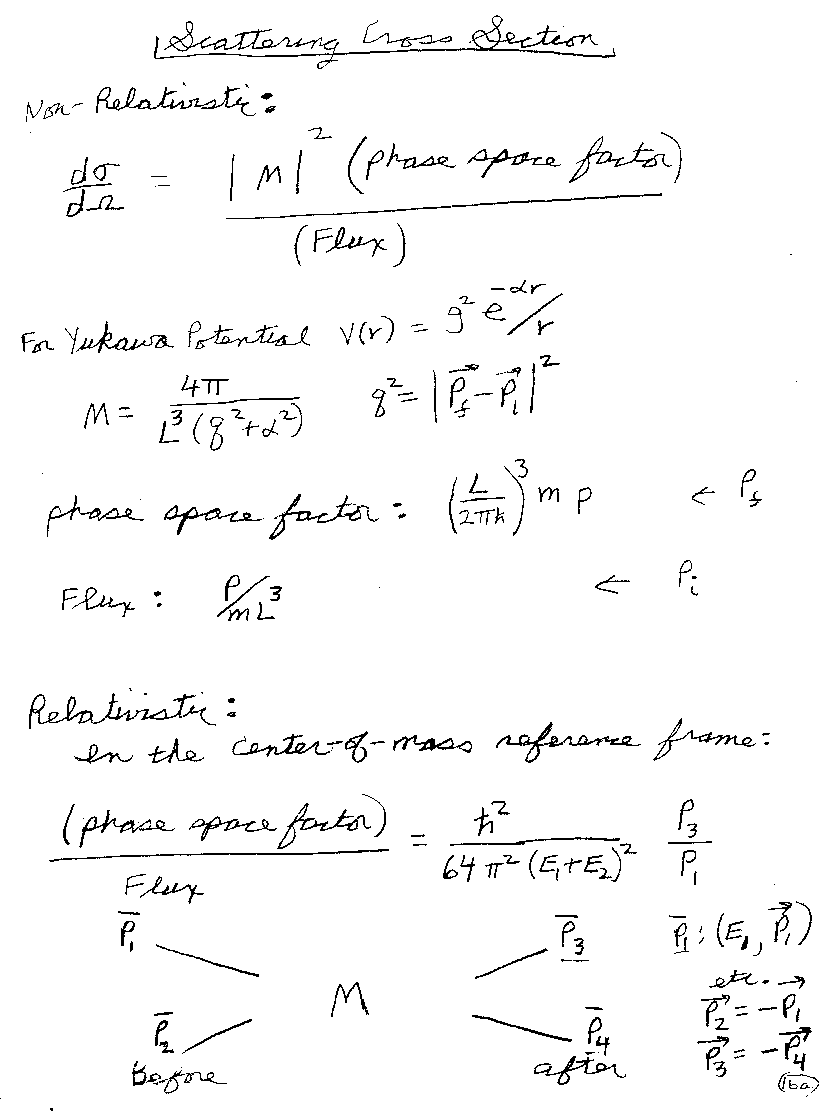 Scattering Cross Section
Non-Relativistic:
dσ/dΩ = |M|² (phase space factor) / (Flux)
For Yukawa Potential V(r) = g² e^(-αr)/r
M = 4π / L³(q²+α²)   q² = |P⃗f - P⃗i|²
phase space factor: (L/2πħ)³ m p   ← Pf
Flux: P/mL³   ← Pi
Relativistic:
In the center-of-mass reference frame:
(phase space factor) / Flux = ħ² / 64π²(E₁+E₂)²   P₃/P₁
P̄₁   P̄₃   P̄₁: (E₁, P⃗₁)
M   etc.
P⃗₂ = -P⃗₁
P̄₂   P̄₄   P⃗₃ = -P⃗₄
Before   after   16a